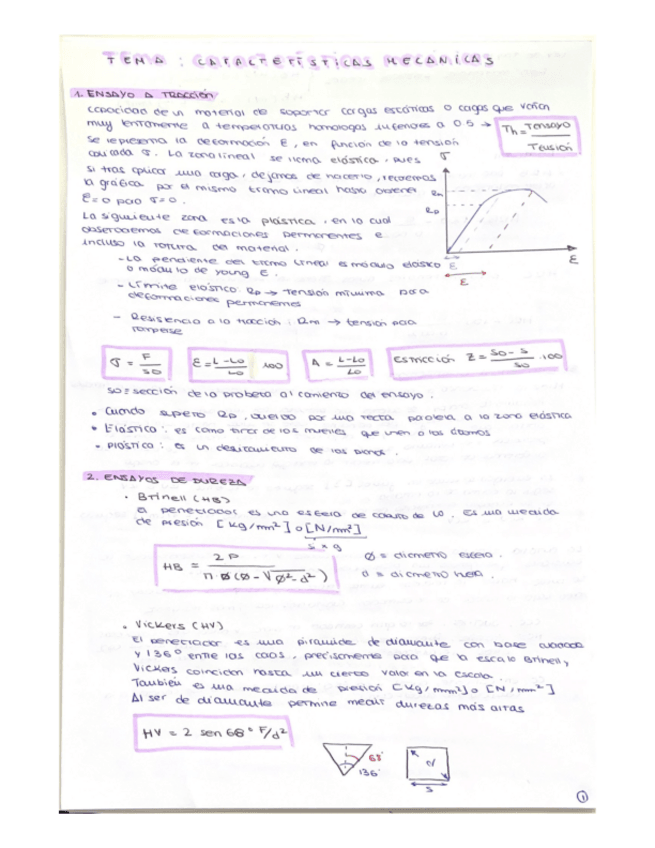 TEMA : CARACTERÍSTICAS MECÁNICAS
1. ENSAYO A TRACCIÓN
capacidad de un material de soportar cargas estáticas o cargas que varían
muy lentamente a temperaturas homologas inferiores a 0.5 → Th = Tensayo / Tfusión
se representa la deformación ε, en función de la tensión
aplicada σ. La zona lineal se llama elástica, pues
si tras aplicar una carga, dejamos de hacerlo, recorremos
la gráfica por el mismo tramo lineal hasta obtener
ε=0 para σ=0.
La siguiente zona es la plástica, en la cual
observaremos deformaciones permanentes e
incluso la rotura del material.
σ
Rm
Rp
ε
ε
ε
- La pendiente del tramo lineal es módulo elástico
o módulo de young E.
- Límite elástico Rp → Tensión mínima para
deformaciones permanentes
- Resistencia a la tracción: Rm → tensión para
romperse
σ = F/S0
ε = L-L0/L0 · 100
A = L-L0/L0
Estricción Z = S0-S/S0 · 100
S0 = sección de la probeta al comienzo del ensayo.
• Cuando supero Rp, vuelvo por una recta paralela a la zona elástica
• Elástica: es como tirar de los muelles que unen a los átomos
• Plástica: es un deslizamiento de los planos.
2. ENSAYOS DE DUREZA
• Brinell (HB)
El penetrador es una esfera de carburo de W. Es una medida
de presión [kg/mm²] o [N/mm²]
HB = 2P / π Ø(Ø - √Ø²-d²)
Ø = diámetro esfera.
d = diámetro huella.
• Vickers (HV)
El penetrador es una pirámide de diamante con base cuadrada
y 136° entre las caras, precisamente para que la escala Brinell y
Vickers coincidan hasta un cierto valor en la escala.
También es una medida de presión [kg/mm²] o [N/mm²]
Al ser de diamante permite medir durezas más altas
HV = 2 sen 68° F/d²
68°
136°
d
S
1